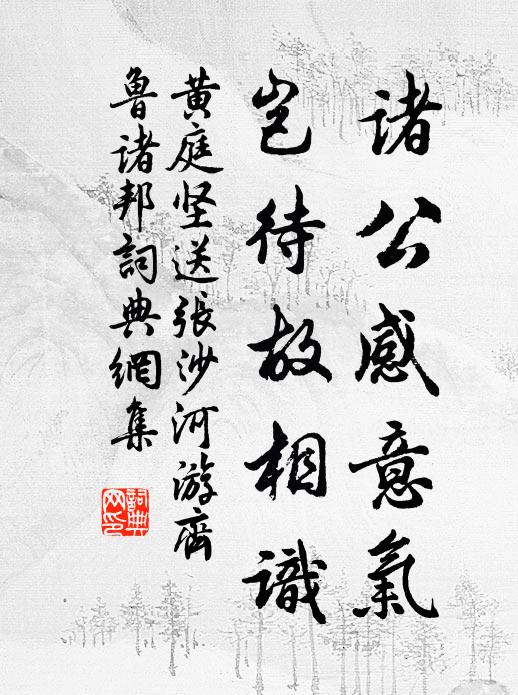 诸公感意氣
岂待故相識
黄庭坚送張沙河游齊
魯诸邦詞典網集
詞典
网印